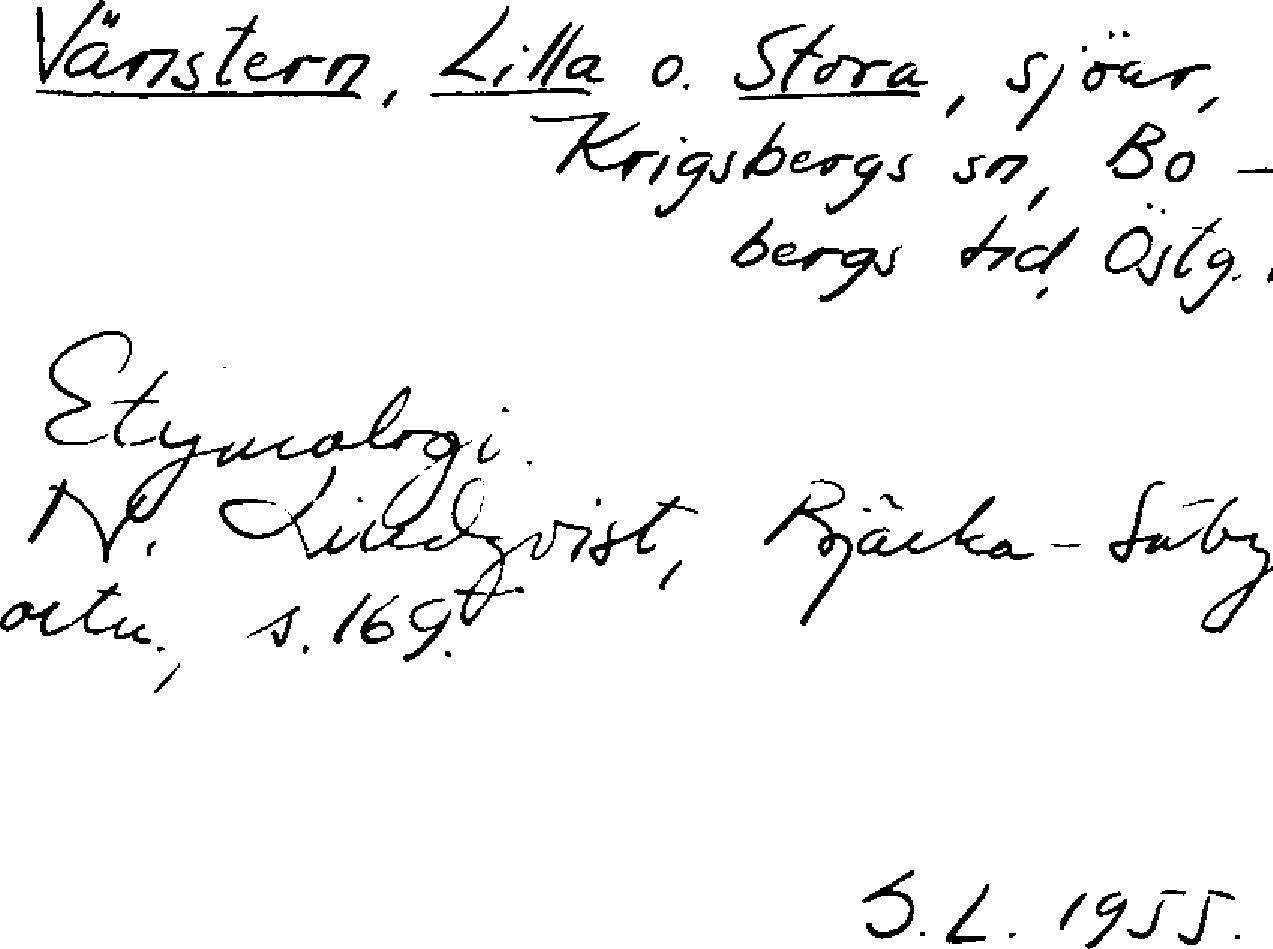 Vänstern, Lilla o. Stora, sjöar,
Krigsbergs sn, Bo-
bergs hd, Östg..
Etymologi.
N. Lindqvist, Bjärka-Säby
ortn., s. 169.
S.L. 1955.